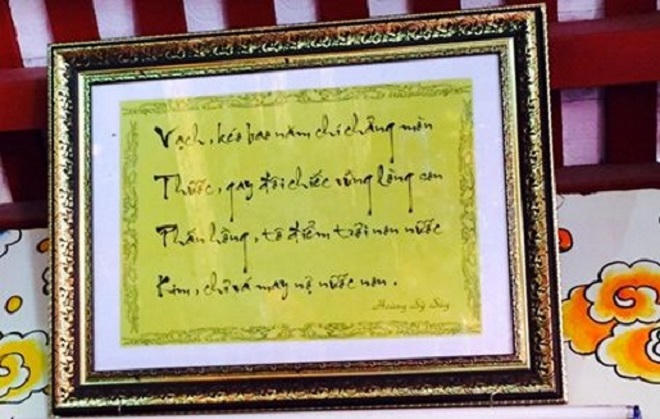 Vạch, kéo bao năm chí chẳng mòn
Thước, gay đôi chiếc vững lòng son
Phấn hồng, tô điểm trời non nước
Kim, chỉ vá may nợ nước non.
Hoàng Sỹ Súy